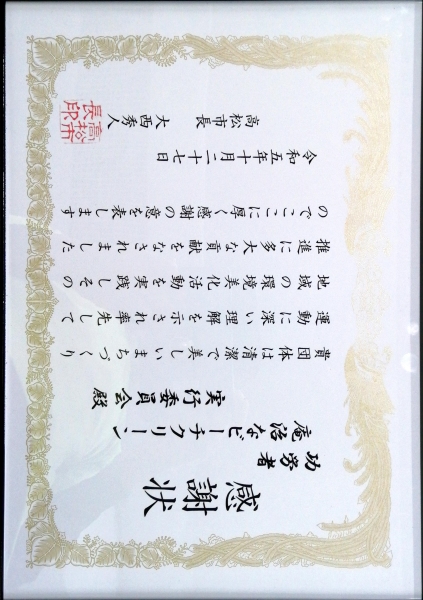 感謝状
功労者
庵治なビーチクリーン
実行委員会 殿
貴団体は清潔で美しいまちづくり
運動に深い理解を示され率先して
地域の環境美化活動を実践しその
推進に多大な貢献をなされました
のでここに厚く感謝の意を表します
令和五年十月二十七日
高松市長 大西秀人
高松市長印